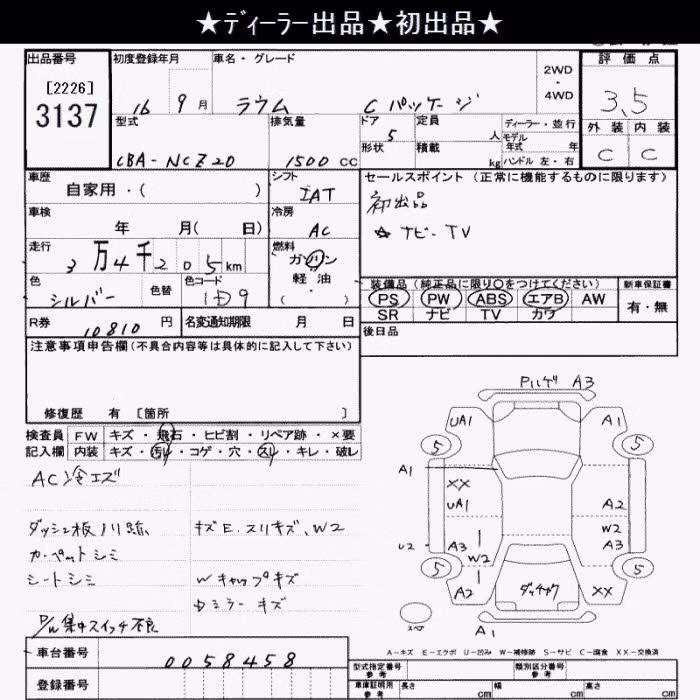 ★ディーラー出品★初出品★
出品番号 初度登録年月 車名・グレード 2WD・4WD 評価点
[2226]
3137 16 9月 ラウム Cパッケージ 3.5
型式 排気量 ドア 定員 人 ディーラー・並行 外装 内装
5 モデル年式 年
形状 積載 kg ハンドル 左・右
CBA-NCZ20 1500cc C C
車歴 シフト セールスポイント(正常に機能するものに限ります)
自家用・( ) IAT 初出品
車検 冷房 ☆ナビーTV
年 月( 日) AC
走行 燃料
3万4千205km ガソリン
軽油
( )
色 色替 色コード 装備品(純正品に限り○をつけてください) 新車保証書
シルバー 1D9 PS PW ABS エアB AW 有・無
SR ナビ TV カワ
R券 10810円 名変通知期限 月 日 後日品
注意事項申告欄(不具合内容等は具体的に記入して下さい)
修復歴 有 [箇所 ]
検査員 FW キズ・飛石・ヒビ割・リペア跡・×要
記入欄 内装 キズ・汚れ・コゲ・穴・スレ・キレ・破レ
AC冷エズ
ダッシュ板ノリ跡 キズE.スリキズ、W2
カーペットシミ
シートシミ Wキャップキズ
ミラーキズ
P/W集中スイッチ不良
Pルゲ A3
UA1 A1
5 5
A1
XX
UA1 A2
W2
U2 A3 A3
W2
5 5
A2 ダッチャク XX
スペア
A1
A-キズ E-エクボ U-凹み W-補修跡 S-サビ C-腐食 XX-交換済
車台番号 0058458
登録番号
型式指定番号 参考 類別区分番号 参考
車庫証明用 参考 長さ cm 幅 cm 高さ cm